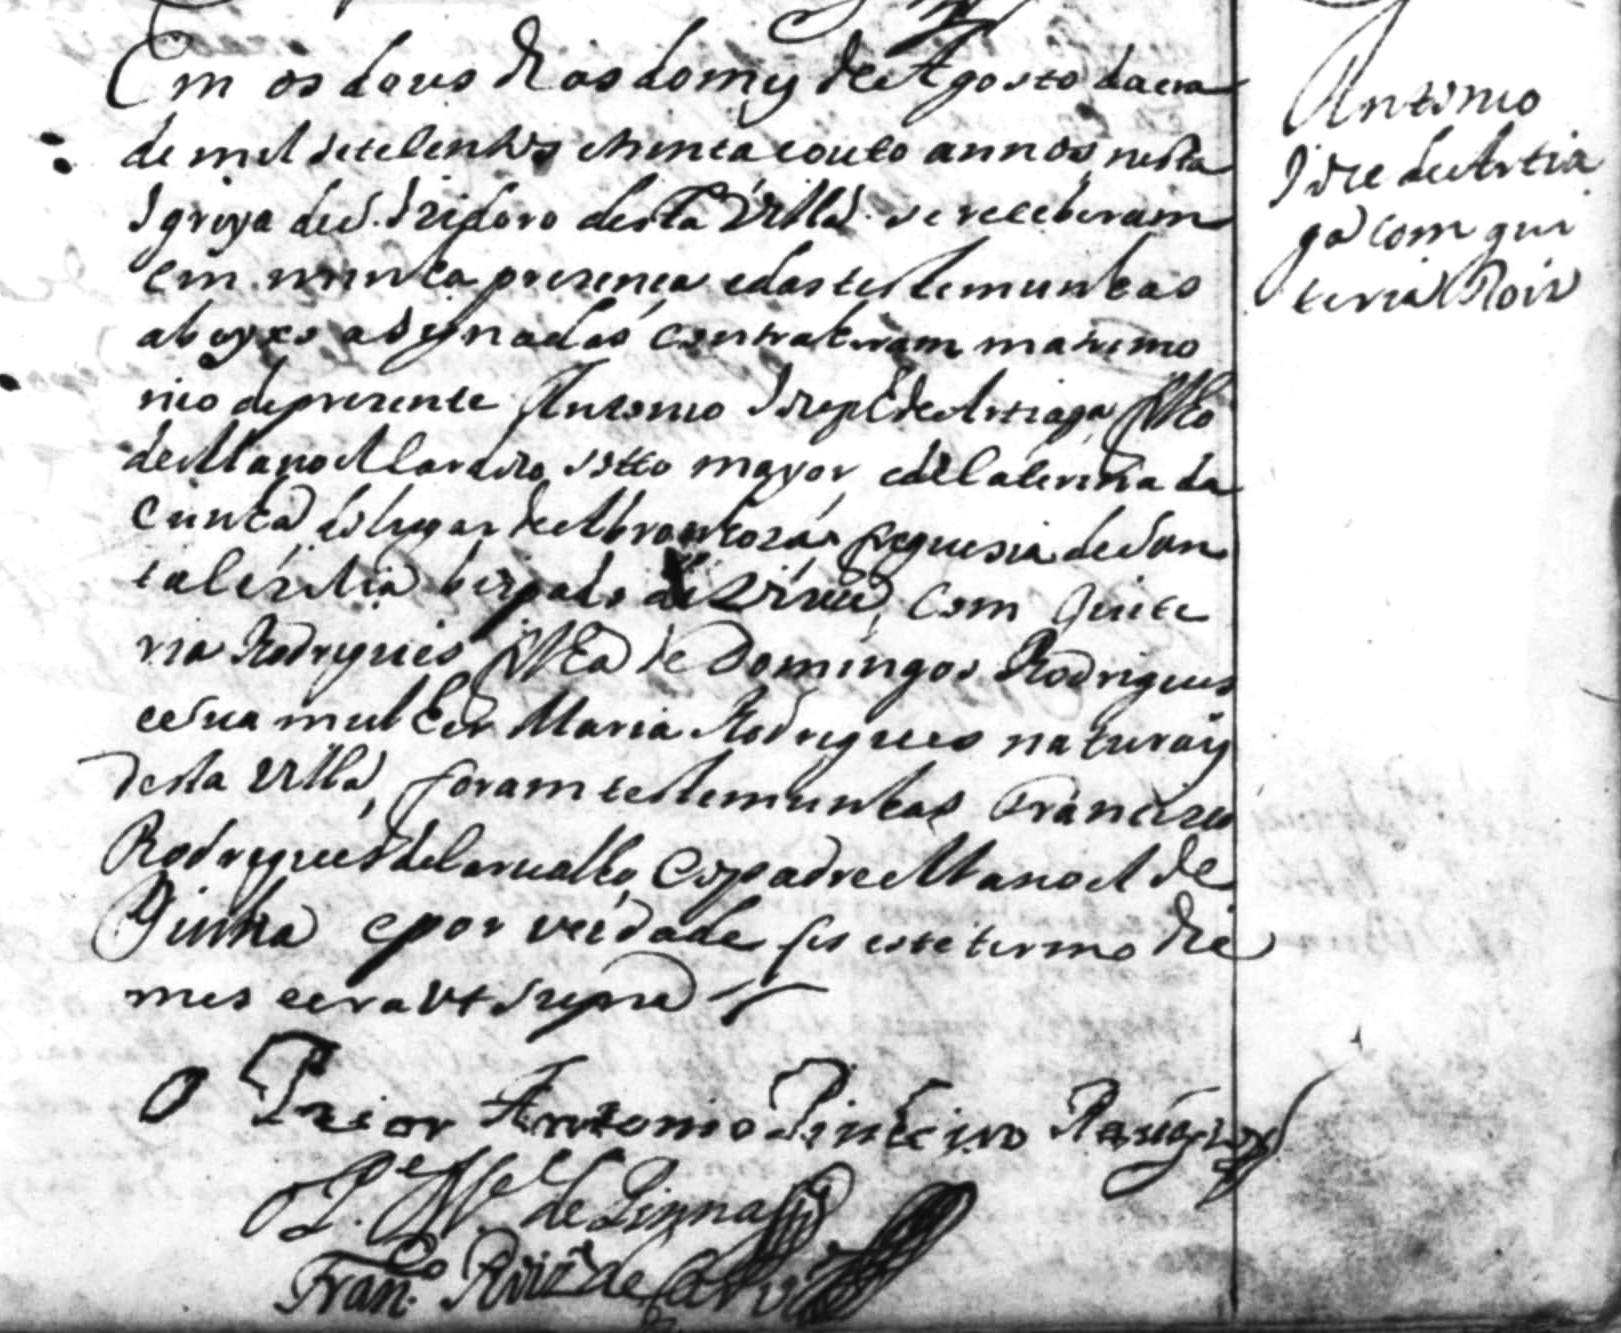 Em os dous dias do mes de Agosto da era
de mil setecentos e trinta e outo annos, nesta
Igreija de S. Izidoro desta Villa se receberam
em minha presença e das testemunhas
aboyxo asignadas contrahiram matrimo
nio de presente Antonio de Artiaga filho
de Manoel mayor, e de Caterina da
Cunha do lugar de freguesia de San
bispado de Vizeu, com Quite
ria Rodrigues filha de Domingos Rodrigues
e e sua mulher Maria Rodrigues naturays
desta Villa, foram testemunhas Francisco
Rodrigues de Carvalho, e o padre Manoel de
Pinha e por verdade fis este termo die
mes e era vt supra
O Prior Antonio Pinheiro
O P.e M.el de Pinna
Fran.co Roiz de Carv
Antonio
de Artia
ga com qui
teria Roiz